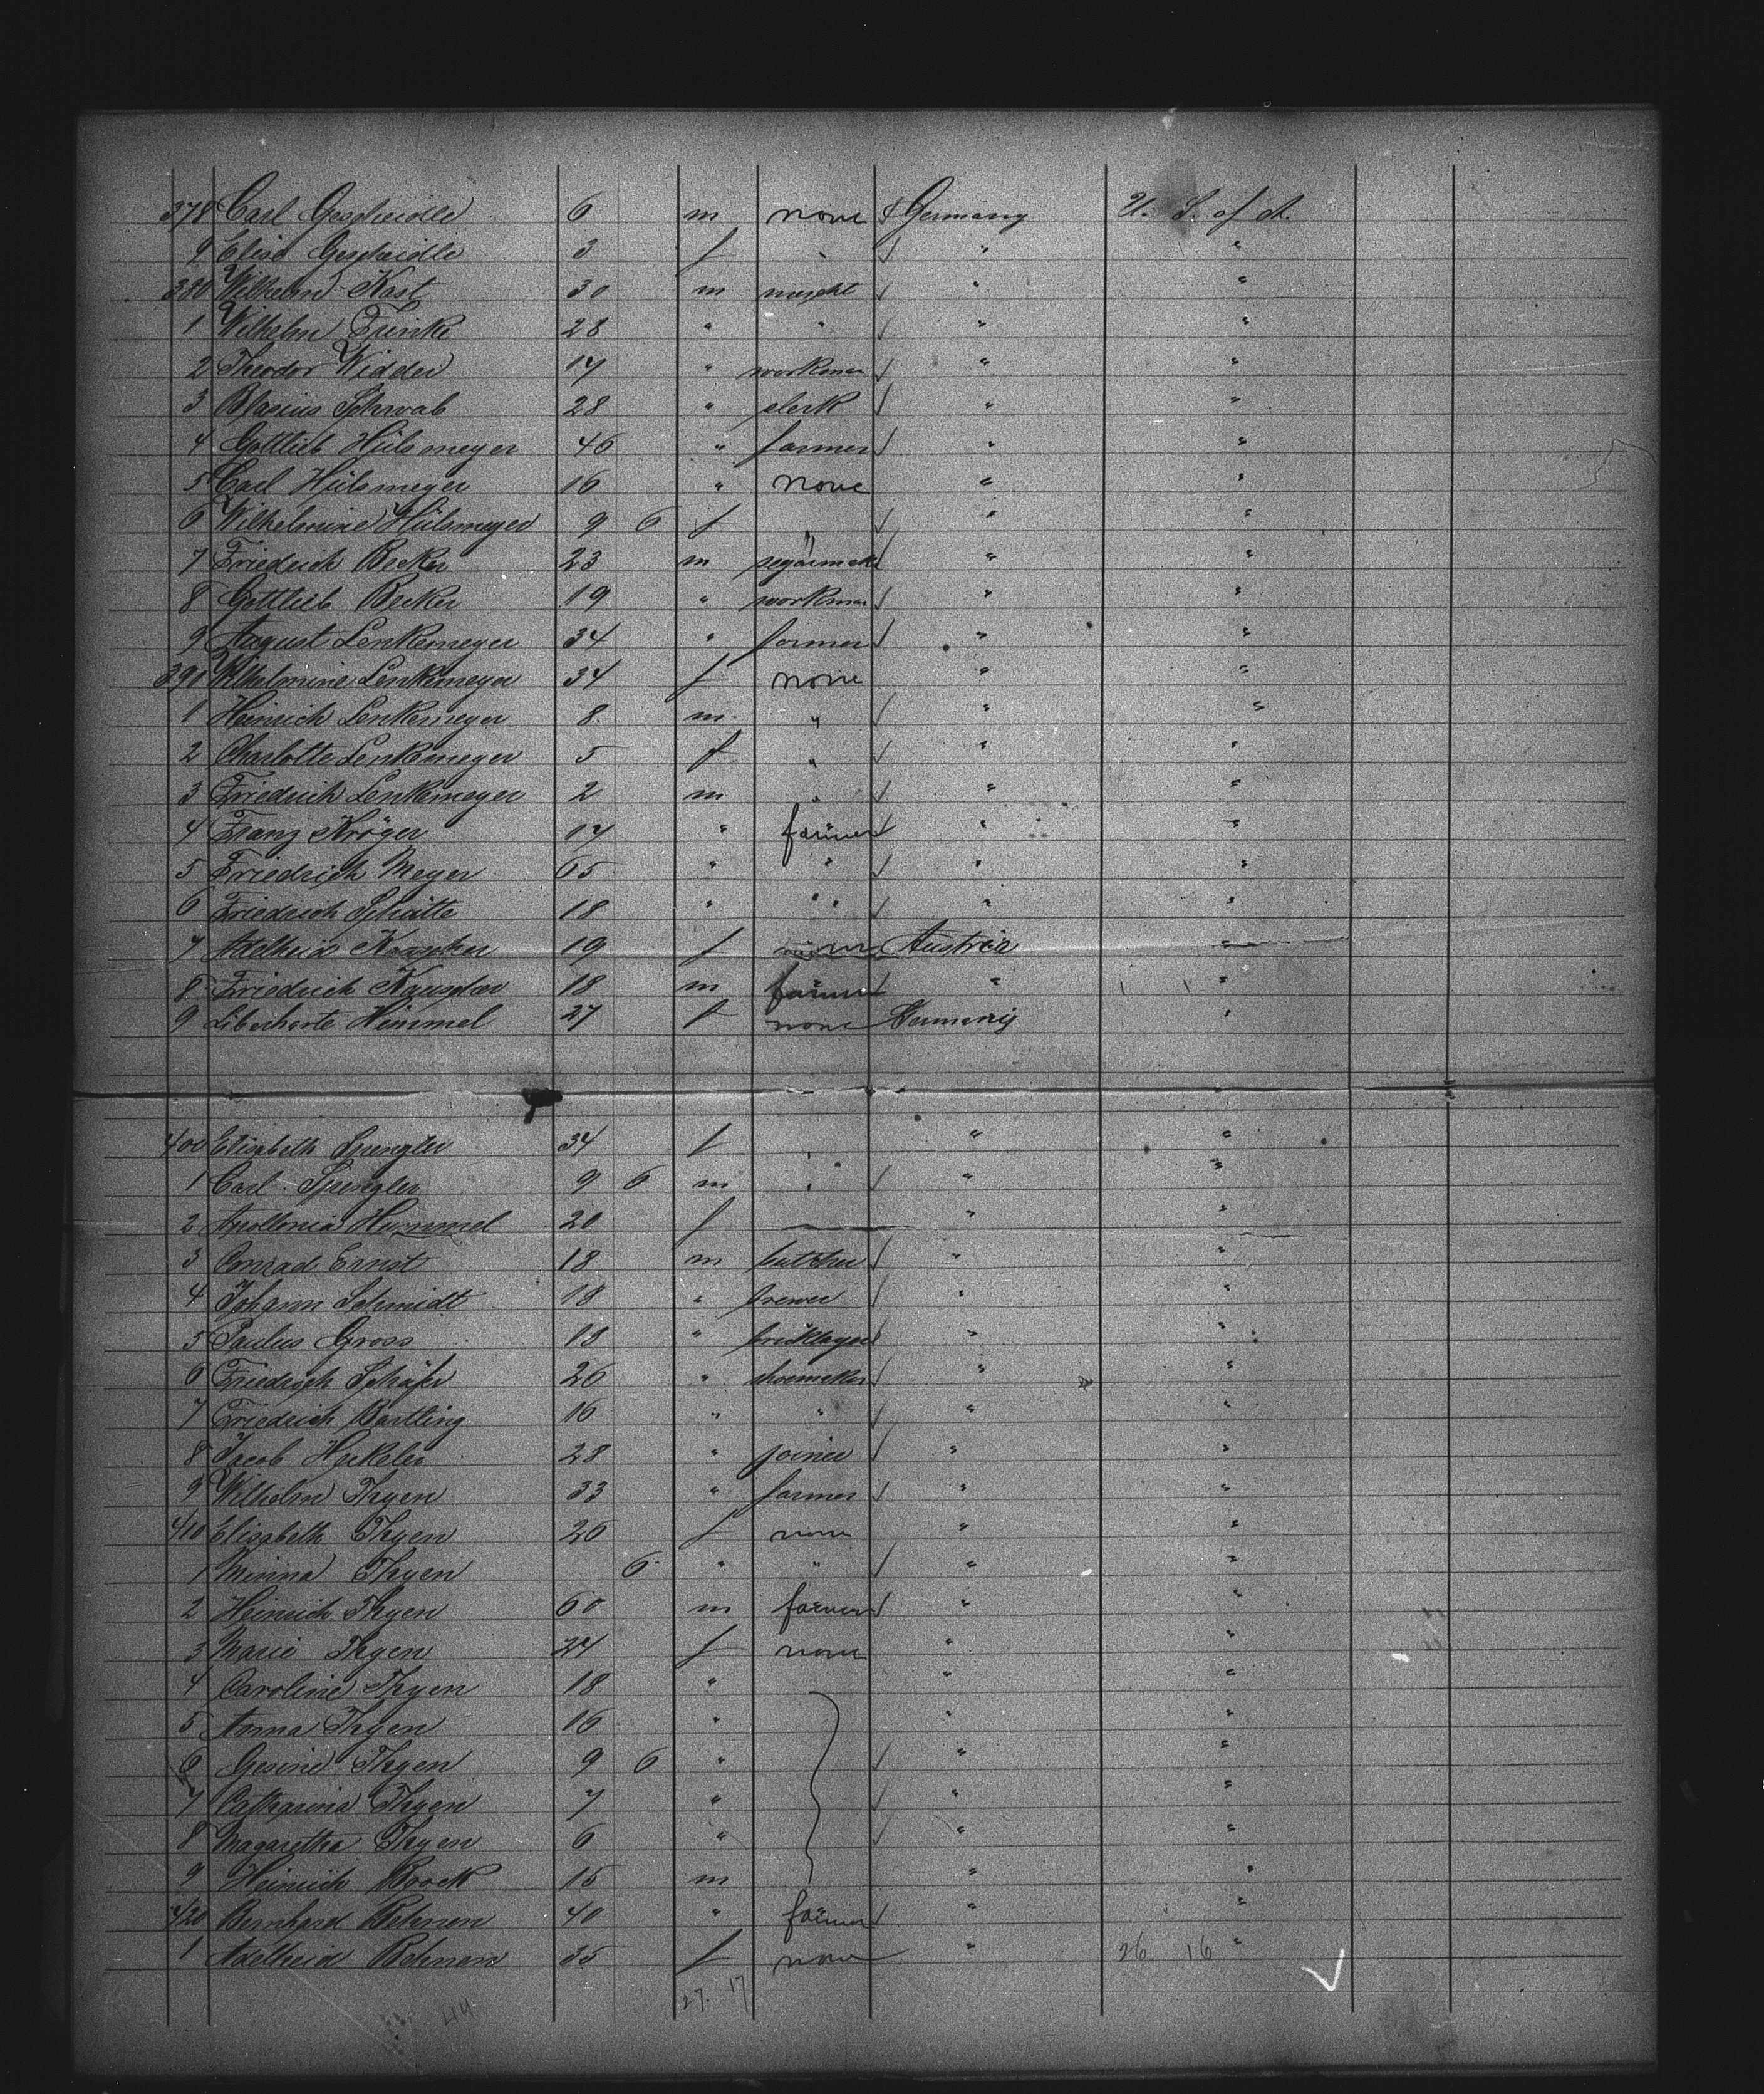 378 Carl Gescheidle 6 m none Germany U. S. of A.
9 Elise Gescheidle 3 f " " "
380 Wilhelm Kast 30 m mercht " "
1 Wilhelm Frinke 28 " " " "
2 Theodor Widder 17 " workman " "
3 Blasius Schwab 28 " clerk " "
4 Gottlieb Hülsmeyer 46 " farmer " "
5 Carl Hülsmeyer 16 " none " "
6 Wilhelmine Hülsmeyer 9 6 f " " "
7 Friedrich Becker 23 m segarmak " "
8 Gottlieb Becker 19 " workman " "
9 August Lenkemeyer 34 " farmer " "
390 Wilhelmine Lenkemeyer 34 f none " "
1 Heinrich Lenkemeyer 8 m " " "
2 Charlotte Lenkemeyer 5 f " " "
3 Friedrich Lenkemeyer 2 m " " "
4 Franz Kröger 17 " farmer " "
5 Friedrich Meyer 65 " " " "
6 Friedrich Schütte 18 " " " "
7 Adelheid 19 f none Austria "
8 Friedrich 18 m farmer " "
9 Himmel 27 f none Germany "
400 Elisabeth Spengler 34 f " " "
1 Carl Spengler 9 6 m " " "
2 Apollonia Hummel 20 f " "
3 Conrad Ernst 18 m butcher " "
4 Johann Schmidt 18 " brewer " "
5 Paulus Gross 18 " bricklayer " "
6 Friedrich Schäfer 26 " shoemaker " "
7 Friedrich Bartling 16 " " " "
8 Jacob Heckeler 28 " joiner " "
9 Wilhelm Thyen 33 " farmer " "
410 Elisabeth Thyen 26 f none " "
1 Minna Thyen 6 " " " "
2 Heinrich Thyen 60 m farmer " "
3 Marie Thyen 24 f none " "
4 Caroline Thyen 18 " " "
5 Anna Thyen 16 " " "
6 Gesine Thyen 9 6 " " "
7 Catharina Thyen 7 " " "
8 Magaretha Thyen 6 " " "
9 Heinrich Boock 15 m " "
420 Bernhard Behnen 40 " farmer " "
1 Adelheid Behnen 35 f none " 26 16 "
44 27. 17